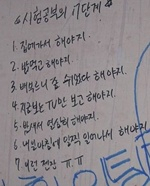 <시험공부의 7단계>
1. 집에가서 해야지.
2. 밥먹고 해야지.
3. 배부르니 좀 쉬었다 해야지.
4. 지금보는 TV만 보고 해야지.
5. 밤새서 열심히 해야지.
6. 내일아침에 일찍 일어나서 해야지
7. 이런 젠장 ㅠ.ㅠ